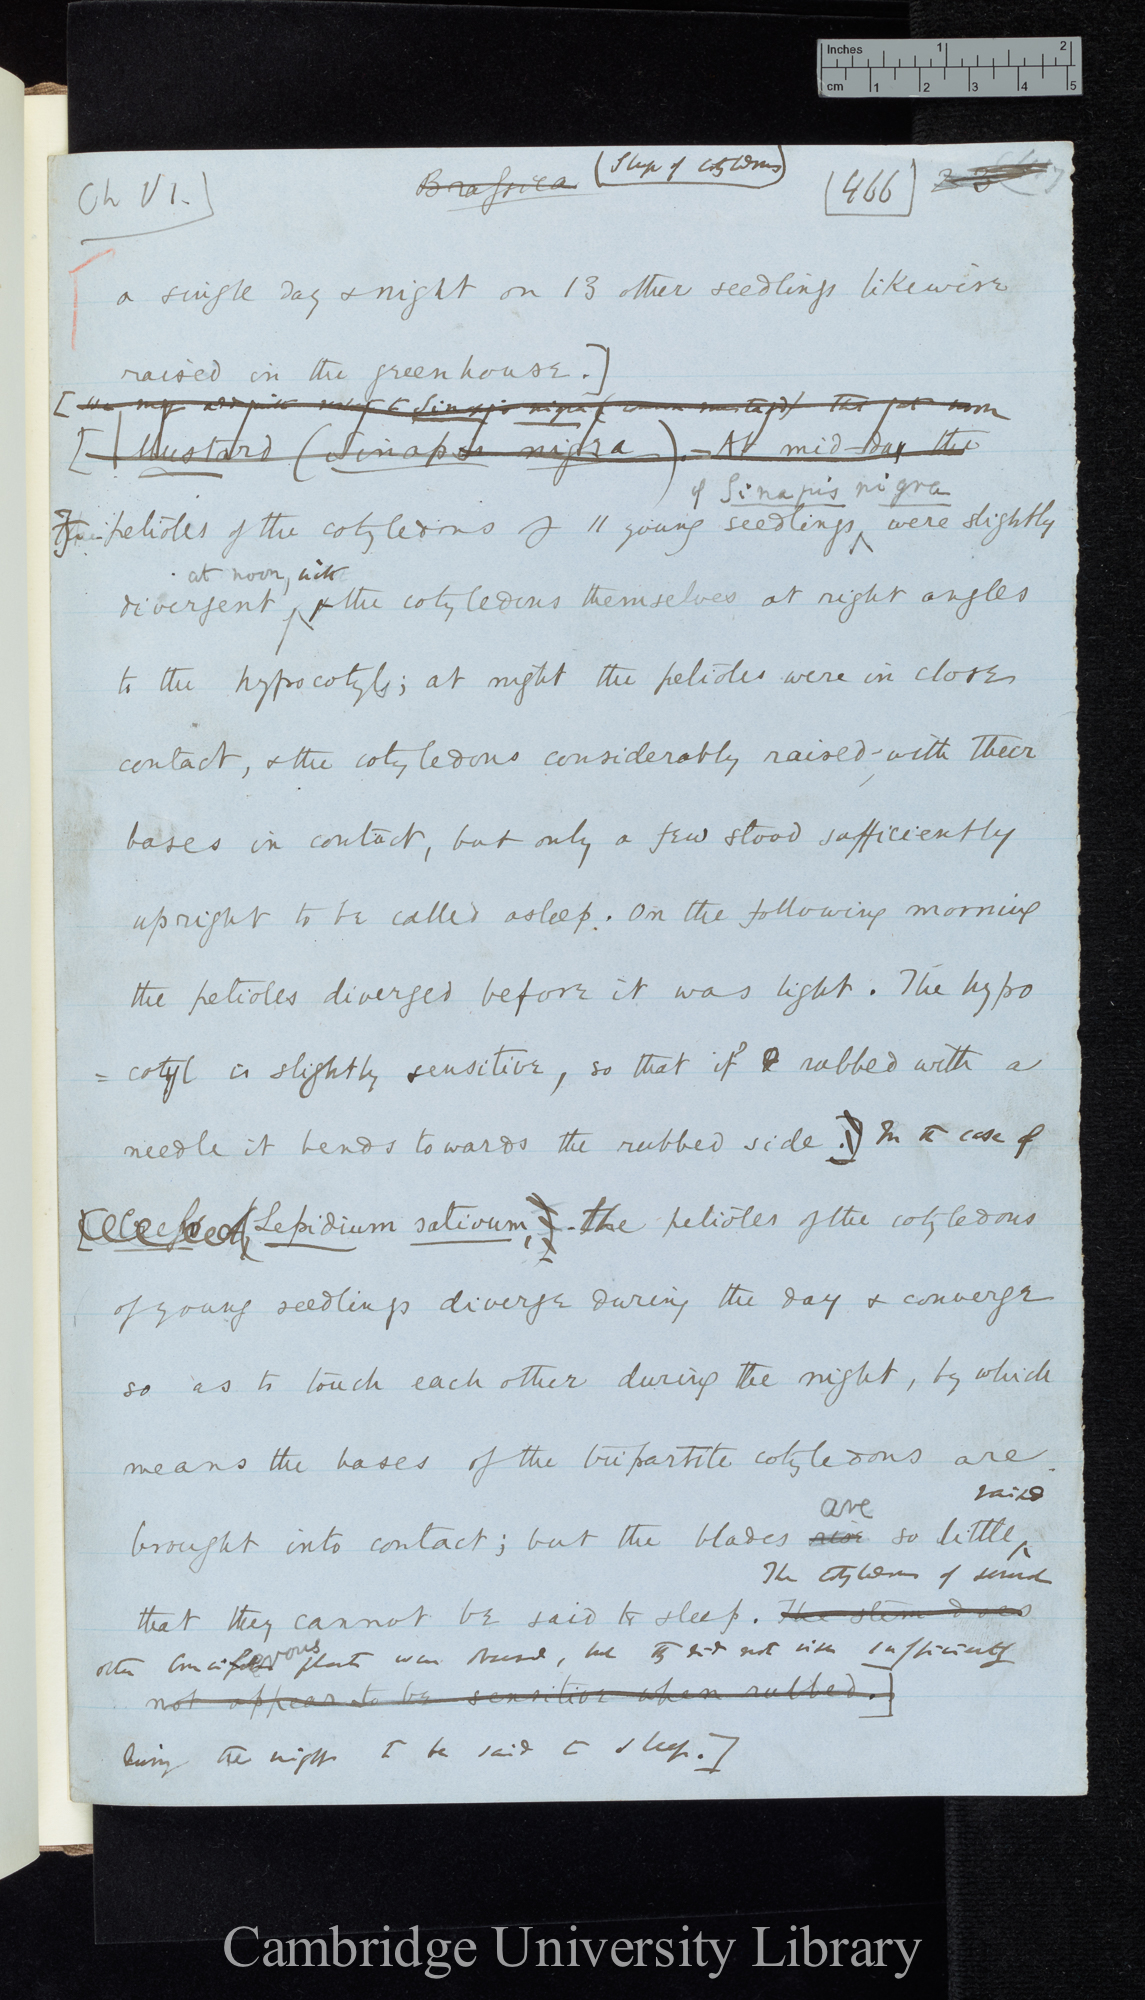 Inches 1 2
cm 1 2 3 4 5
Ch VI.] Brassica (Sleep of Cotyledons) [466]
a single day & night on 13 other seedlings likewise
raised in the greenhouse.]
[We may add Sinapis nigra (common mustard) that at noon
[Mustard (Sinapis nigra). — At mid-day the
of Sinapis nigra
The petioles of the cotyledons of 11 young seedlings, were slightly
at noon, with
divergent, & the cotyledons themselves at right angles
to the hypocotyls; at night the petioles were in close
contact, & the cotyledons considerably raised with their
bases in contact, but only a few stood sufficiently
upright to be called asleep. On the following morning
the petioles diverged before it was light. The hypo
= cotyl is slightly sensitive, so that if rubbed with a
needle it bends towards the rubbed side.] In the case of
[Cress (Lepidium sativum,) - the petioles of the cotyledons
of young seedlings diverge during the day & converge
so as to touch each other during the night, by which
means the bases of the tripartite cotyledons are
are raised
brought into contact; but the blades rise so little
The cotyledons of several
that they cannot be said to sleep. The stem does
other Cruciferous plants were observed, but they did not rise sufficiently
not appear to be sensitive when rubbed.]
during the night to be said to sleep.]
Cambridge University Library